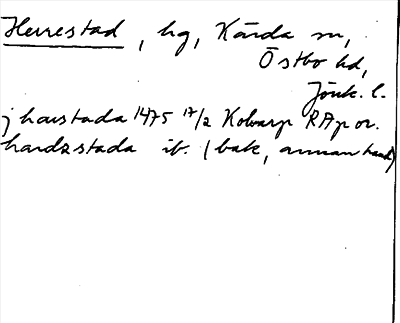 Herrestad, hg, Kärda sn,
Östbo hd,
Jönk. l.
j harstada 1475 17/2 Kolvarp RAp or.
hardzstada ib. (bak, annan hand)